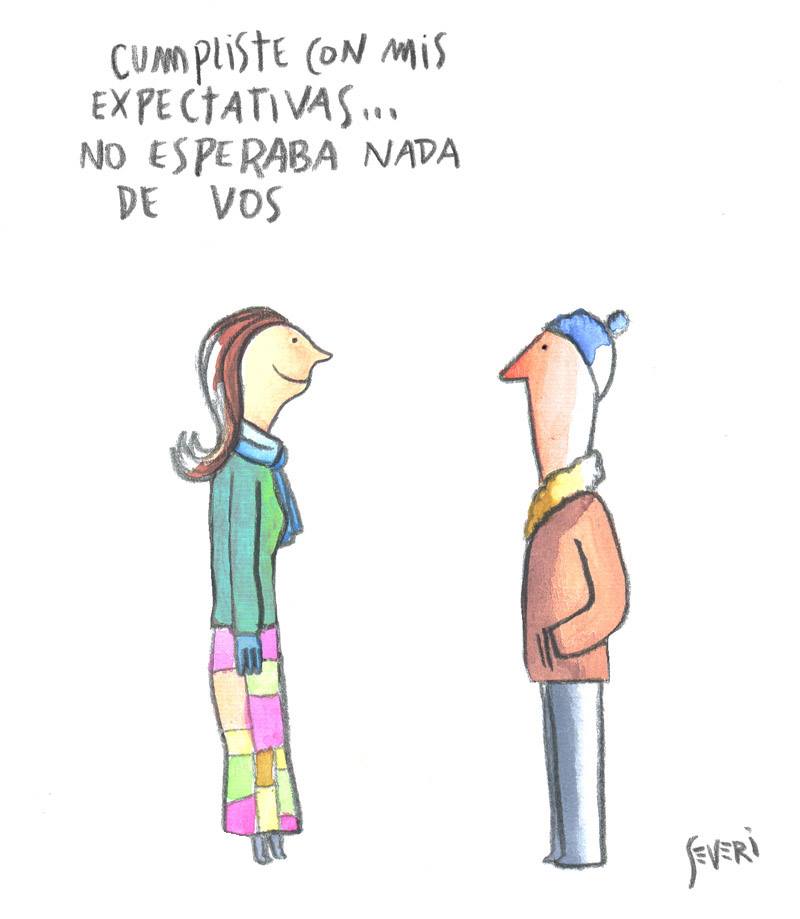 CUMPLISTE CON MIS
EXPECTATIVAS...
NO ESPERABA NADA
DE VOS
SEVERI